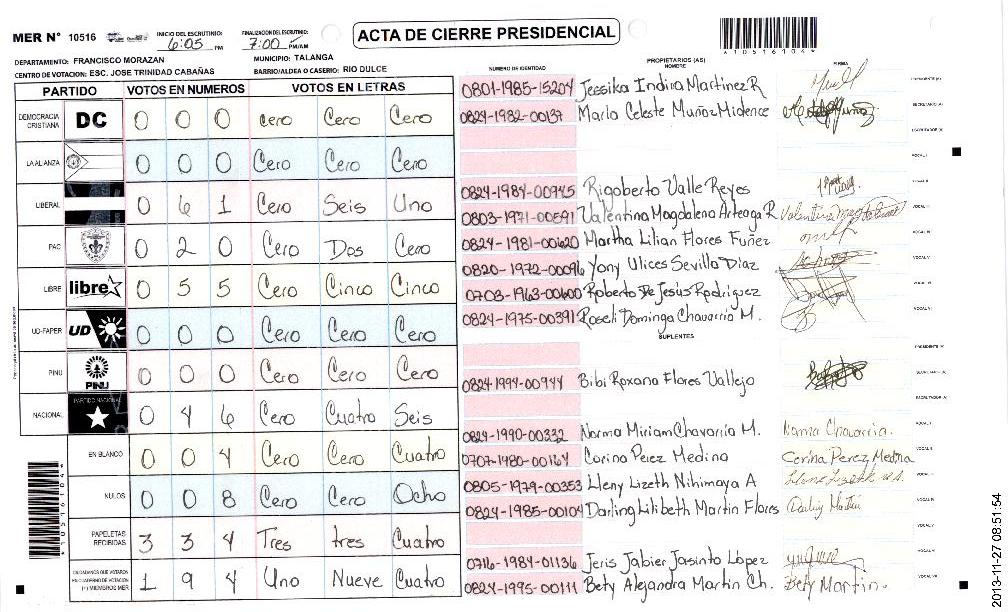 MER N° 10516
INICIO DEL ESCRUTINIO
6:05 PM
FINALIZACION DEL ESCRUTINIO
7:00 PM/AM
ACTA DE CIERRE PRESIDENCIAL
*10516104*
DEPARTAMENTO: FRANCISCO MORAZAN
MUNICIPIO: TALANGA
CENTRO DE VOTACION: ESC. JOSE TRINIDAD CABAÑAS
BARRIO/ALDEA O CASERIO: RIO DULCE
PARTIDO VOTOS EN NUMEROS VOTOS EN LETRAS
DEMOCRACIA CRISTIANA DC 0 0 0 Cero Cero Cero
LA ALIANZA 0 0 0 Cero Cero Cero
LIBERAL 0 6 1 Cero Seis Uno
PAC 0 2 0 Cero Dos Cero
LIBRE libre 0 5 5 Cero Cinco Cinco
UD-FAPER UD 0 0 0 Cero Cero Cero
PINU PINU 0 0 0 Cero Cero Cero
NACIONAL PARTIDO NACIONAL 0 4 6 Cero Cuatro Seis
EN BLANCO 0 0 4 Cero Cero Cuatro
NULOS 0 0 8 Cero Cero Ocho
PAPELETAS RECIBIDAS 3 3 4 Tres tres Cuatro
CIUDADANOS QUE VOTARON EN CUADERNO DE VOTACION (+) MIEMBROS MER 1 9 4 Uno Nueve Cuatro
*10516104*
NUMERO DE IDENTIDAD
PROPIETARIOS (AS)
NOMBRE
FIRMA
0801-1985-15204 Jessika Indira Martinez R PRESIDENTE (A)
0824-1982-00137 Marlo Celeste Muñoz Midence SECRETARIO (A)
ESCRUTADOR (A)
VOCAL I
0824-1984-00945 Rigoberto Valle Reyes VOCAL II
0803-1971-00591 Valentina Magdalena Arteaga R VOCAL III
0824-1981-00620 Martha Lilian Flores Fuñez VOCAL IV
0820-1972-00096 Yony Ulices Sevilla Diaz VOCAL V
0703-1963-00600 Roberto De Jesús Rodriguez VOCAL VI
0824-1975-00391 Roseli Domingo Chavarria M.
SUPLENTES
PRESIDENTE (A)
0824-1994-00944 Bibi Roxana Flores Vallejo SECRETARIO (A)
ESCRUTADOR (A)
0824-1990-00332 Norma Miriam Chavarria M. Norma Chavarria. VOCAL I
0707-1980-00164 Corina Perez Medina Corina Perez Medina
0805-1979-00353 Lleny Lizeth Nihimaya A
0824-1985-00104 Darling Lilibeth Martin Flores VOCAL IV
VOCAL V
0716-1984-01136 Jeris Jabier Jasinto López VOCAL VI
0824-1995-00111 Bety Alejandra Martin Ch. Bety Martin.
2013-11-27 08:51:54